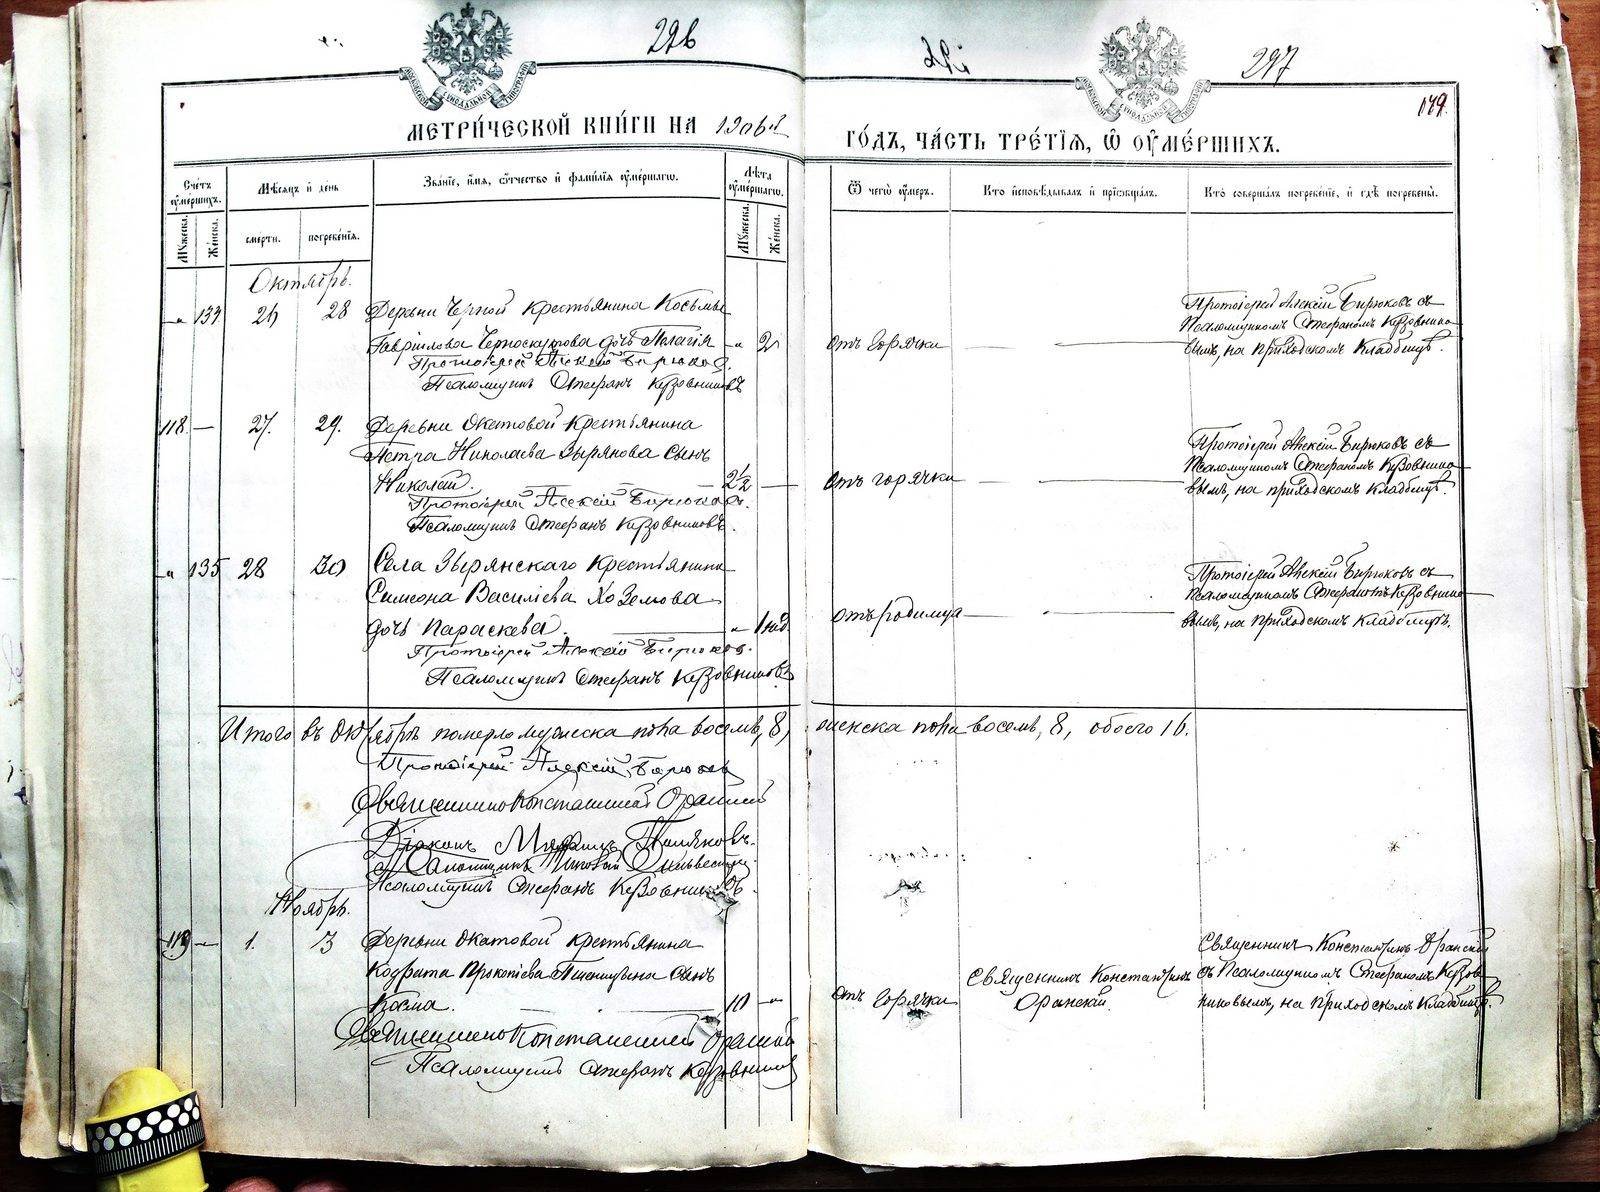 296
297
179.
МЕТРИ́ЧЕСКОЙ КНИ́ГИ НА 1906 й
ГО́ДЪ, ЧА́СТЬ ТРЕ́ТІЯ, Ѡ ОУМЕ́РШИХЪ.
Сче́тъ оуме́ршихъ.
Му́жеска.
Же́нска.
Мѣ́сяцъ и де́нь
сме́рти.
погребе́нія.
Зва́ніе, и́мя, о́тчество и фами́лія оуме́ршагѡ.
Лѣ́та оуме́ршагѡ.
Му́жеска.
Же́нска.
Ѿ чегѡ̀ оу́меръ.
Кто̀ исповѣ́дывалъ и приѡбща́лъ.
Кто̀ соверша́лъ погребе́ніе, и гдѣ̀ погребены̀.
Октябрь.
" 134 26 28 Деревни Черной крестьянина Косьмы
Гавріилова Черноскутова дочь Пелагія — " 2 отъ горячки — —
Протоіерей Алексій Бирюковъ.
Псаломщикъ Стефанъ Кузовниковъ
Протоіерей Алексій Бирюковъ съ
Псаломщикомъ Стефаномъ Кузовнико
вымъ, на приходскомъ кладбищѣ.
118. — 27. 29. Деревни Окатовой крестьянина
Петра Николаева Зырянова сынъ
Николай. — 2½ — отъ горячки — —
Протоіерей Алексій Бирюковъ.
Псаломщикъ Стефанъ Кузовниковъ.
Протоіерей Алексій Бирюковъ съ
Псаломщикомъ Стефаномъ Кузовнико
вымъ, на приходскомъ кладбищѣ.
" 135 28 30 Села Зырянскаго крестьянина
Симеона Василіева
дочь Параскева. — " 1 нед. отъ родимца — —
Протоіерей Алексій Бирюковъ.
Псаломщикъ Стефанъ Кузовниковъ
Протоіерей Алексій Бирюковъ съ
Псаломщикомъ Стефаномъ Кузовнико
вымъ, на приходскомъ кладбищѣ.
Итого въ Октябрѣ померло мужеска пола восемь, 8, женска пола восемь, 8, обоего 16.
Протоіерей Алексій Бирюковъ
Священникъ Константинъ Оранскій
Діаконъ
Псаломщикъ
Псаломщикъ Стефанъ Кузовниковъ.
Ноябрь.
119 — 1. 3 Деревни Окатовой крестьянина
Кодрата Прокопіева Пшеницына сынъ
Косма. — 10 — " отъ горячки
Священникъ Константинъ Оранскій
Псаломщикъ Стефанъ Кузовниковъ
Священникъ Константинъ
Оранскій
Священникъ Константинъ Оранскій
съ Псаломщикомъ Стефаномъ Кузов
никовымъ, на приходскомъ кладбищѣ.